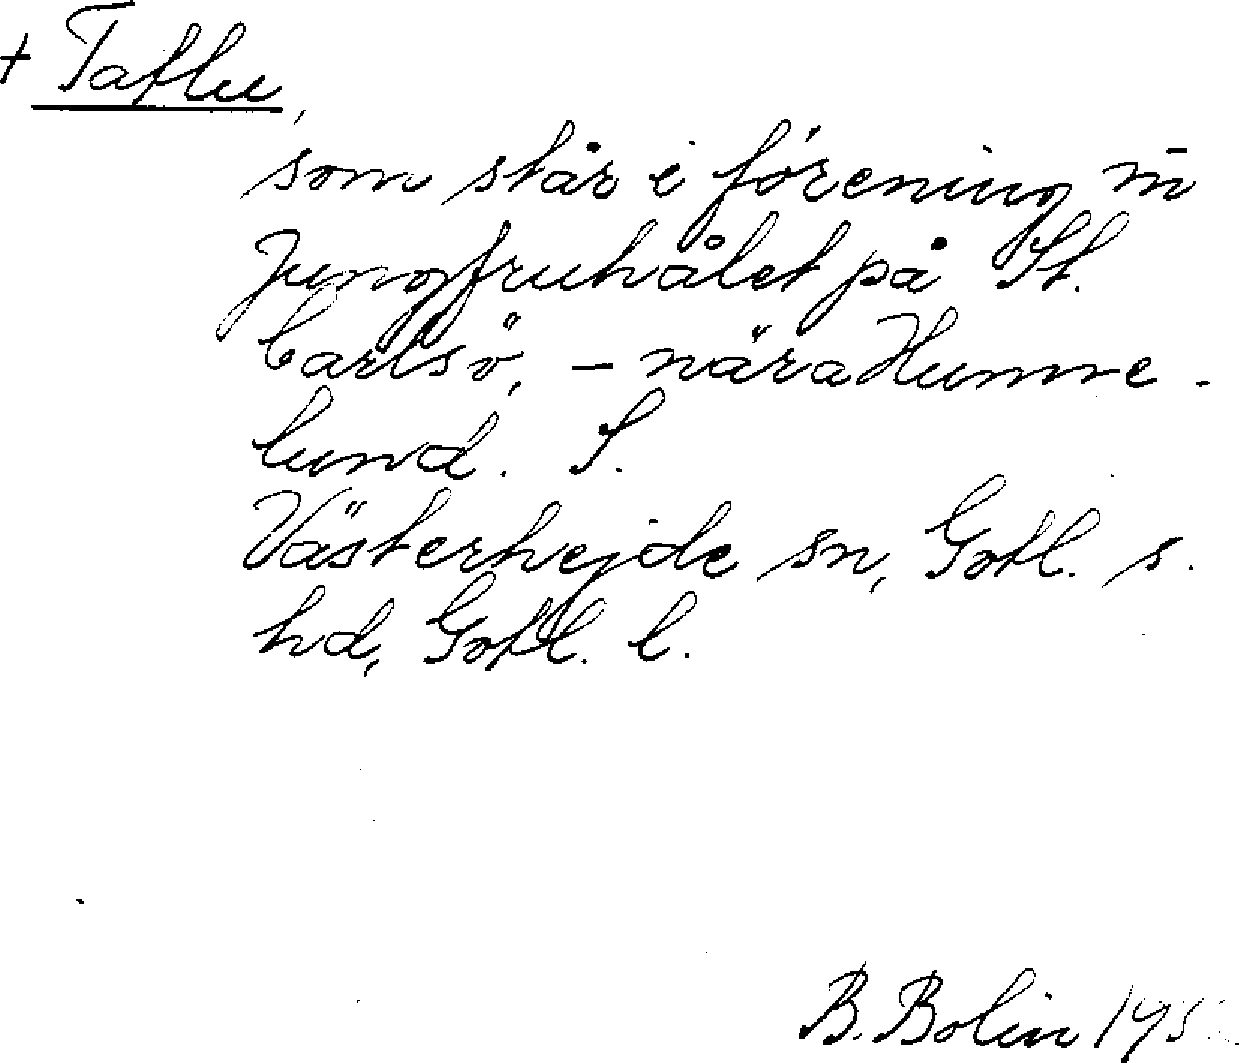 + Taflu,
som står i förening m̄
Jungfruhålet på St.
Carlsö, – nära Humme-
lund. S.
Västerhejde sn, Gotl. s.
hd, Gotl. l.
B. Bolin